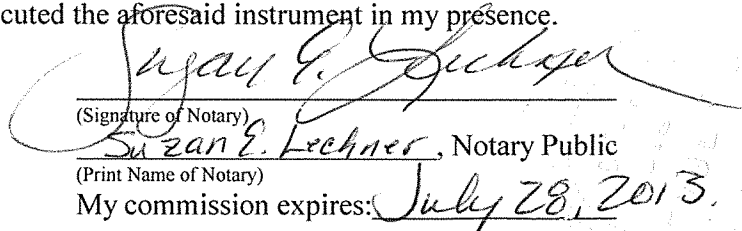 cuted the aforesaid instrument in my presence.
Suzan E. Lechner
(Signature of Notary)
Suzan E. Lechner, Notary Public
(Print Name of Notary)
My commission expires: July 28, 2013.